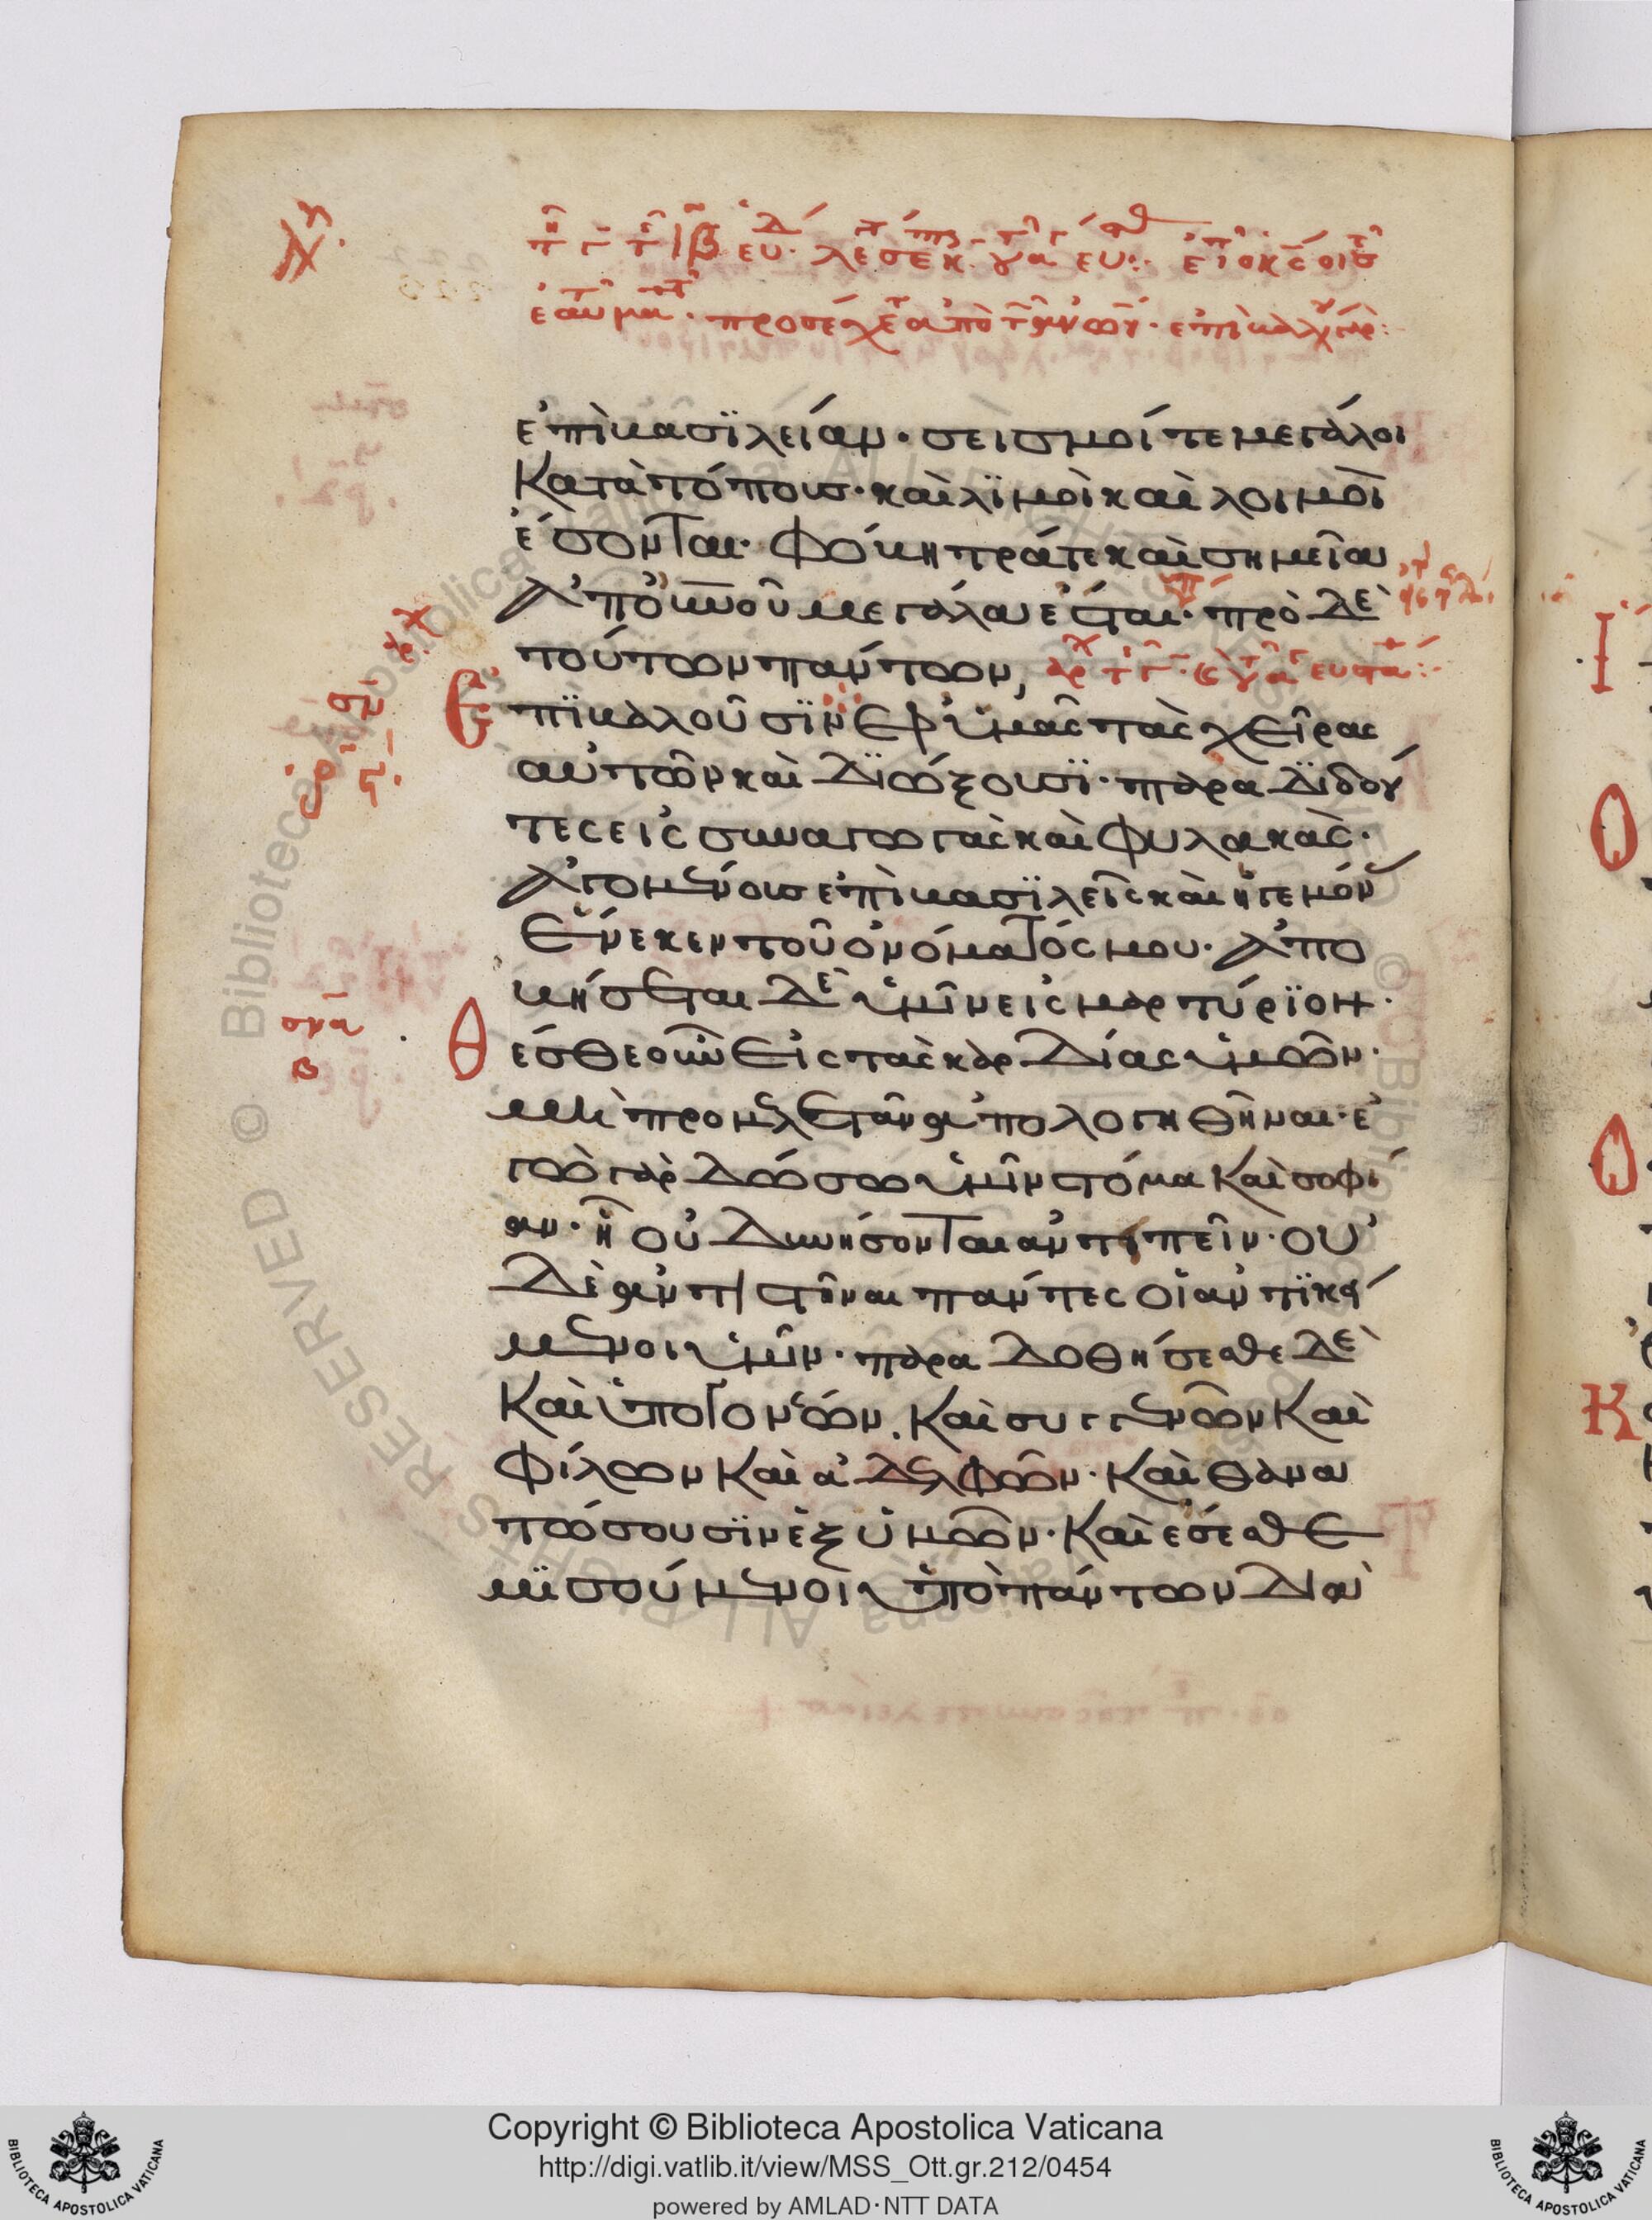 ἐπὶ βασϊλείαν· σεισμοί τε μεγάλοι
Κατὰ τόπους· καὶ λϊμοὶ καὶ λοιμοὶ
ἔσονται· Φόβητρά τε καὶ σημεῖα
Ἀπ' οὐνοῦ μεγάλα ἔσται· πρὸ δὲ
τούτων πάντων,
Ἐπϊβαλοῦσϊν ἐφ' ὑμᾶς τὰς χεῖρας
αὐτῶν καὶ Δϊώξουσϊ· παραδϊδόν
τες εἰς συναγωγὰς καὶ φυλακάς·
Ἀγομένους ἐπὶ βασϊλεῖς καὶ ἡγεμόν
Ἕνεκεν τοῦ ὀνόματός μου· Ἀπο
βήσεται δὲ ὑμῖν εἰς μαρτύρϊον·
Θέσθε οὖν εἰς τὰς καρδίας ὑμῶν·
μὴ προμελετᾶν ἀπολογηθῆναι· ἐ
γὼ γὰρ δώσω ὑμῖν στόμα Καὶ σοφί
αν· ᾗ οὐ δυνήσονται ἀντιπεῖν· οὐ
Δὲ ἀντιστῆναι πάντες οἱ ἀντϊκεί
μενοι ὑμῖν· παραδοθήσεσθε δὲ
Καὶ ὑπὸ γονέων. Καὶ συγγενῶν Καὶ
Φίλων Καὶ ἀδελφῶν· Καὶ θανα
τώσουσϊν ἐξ ὑμῶν· Καὶ ἔσεσθε
μϊσούμενοι ὑπὸ πάντων Διὰ
Copyright © Biblioteca Apostolica Vaticana
http://digi.vatlib.it/view/MSS_Ott.gr.212/0454
powered by AMLAD·NTT DATA
BIBLIOTECA APOSTOLICA VATICANA
BIBLIOTECA APOSTOLICA VATICANA